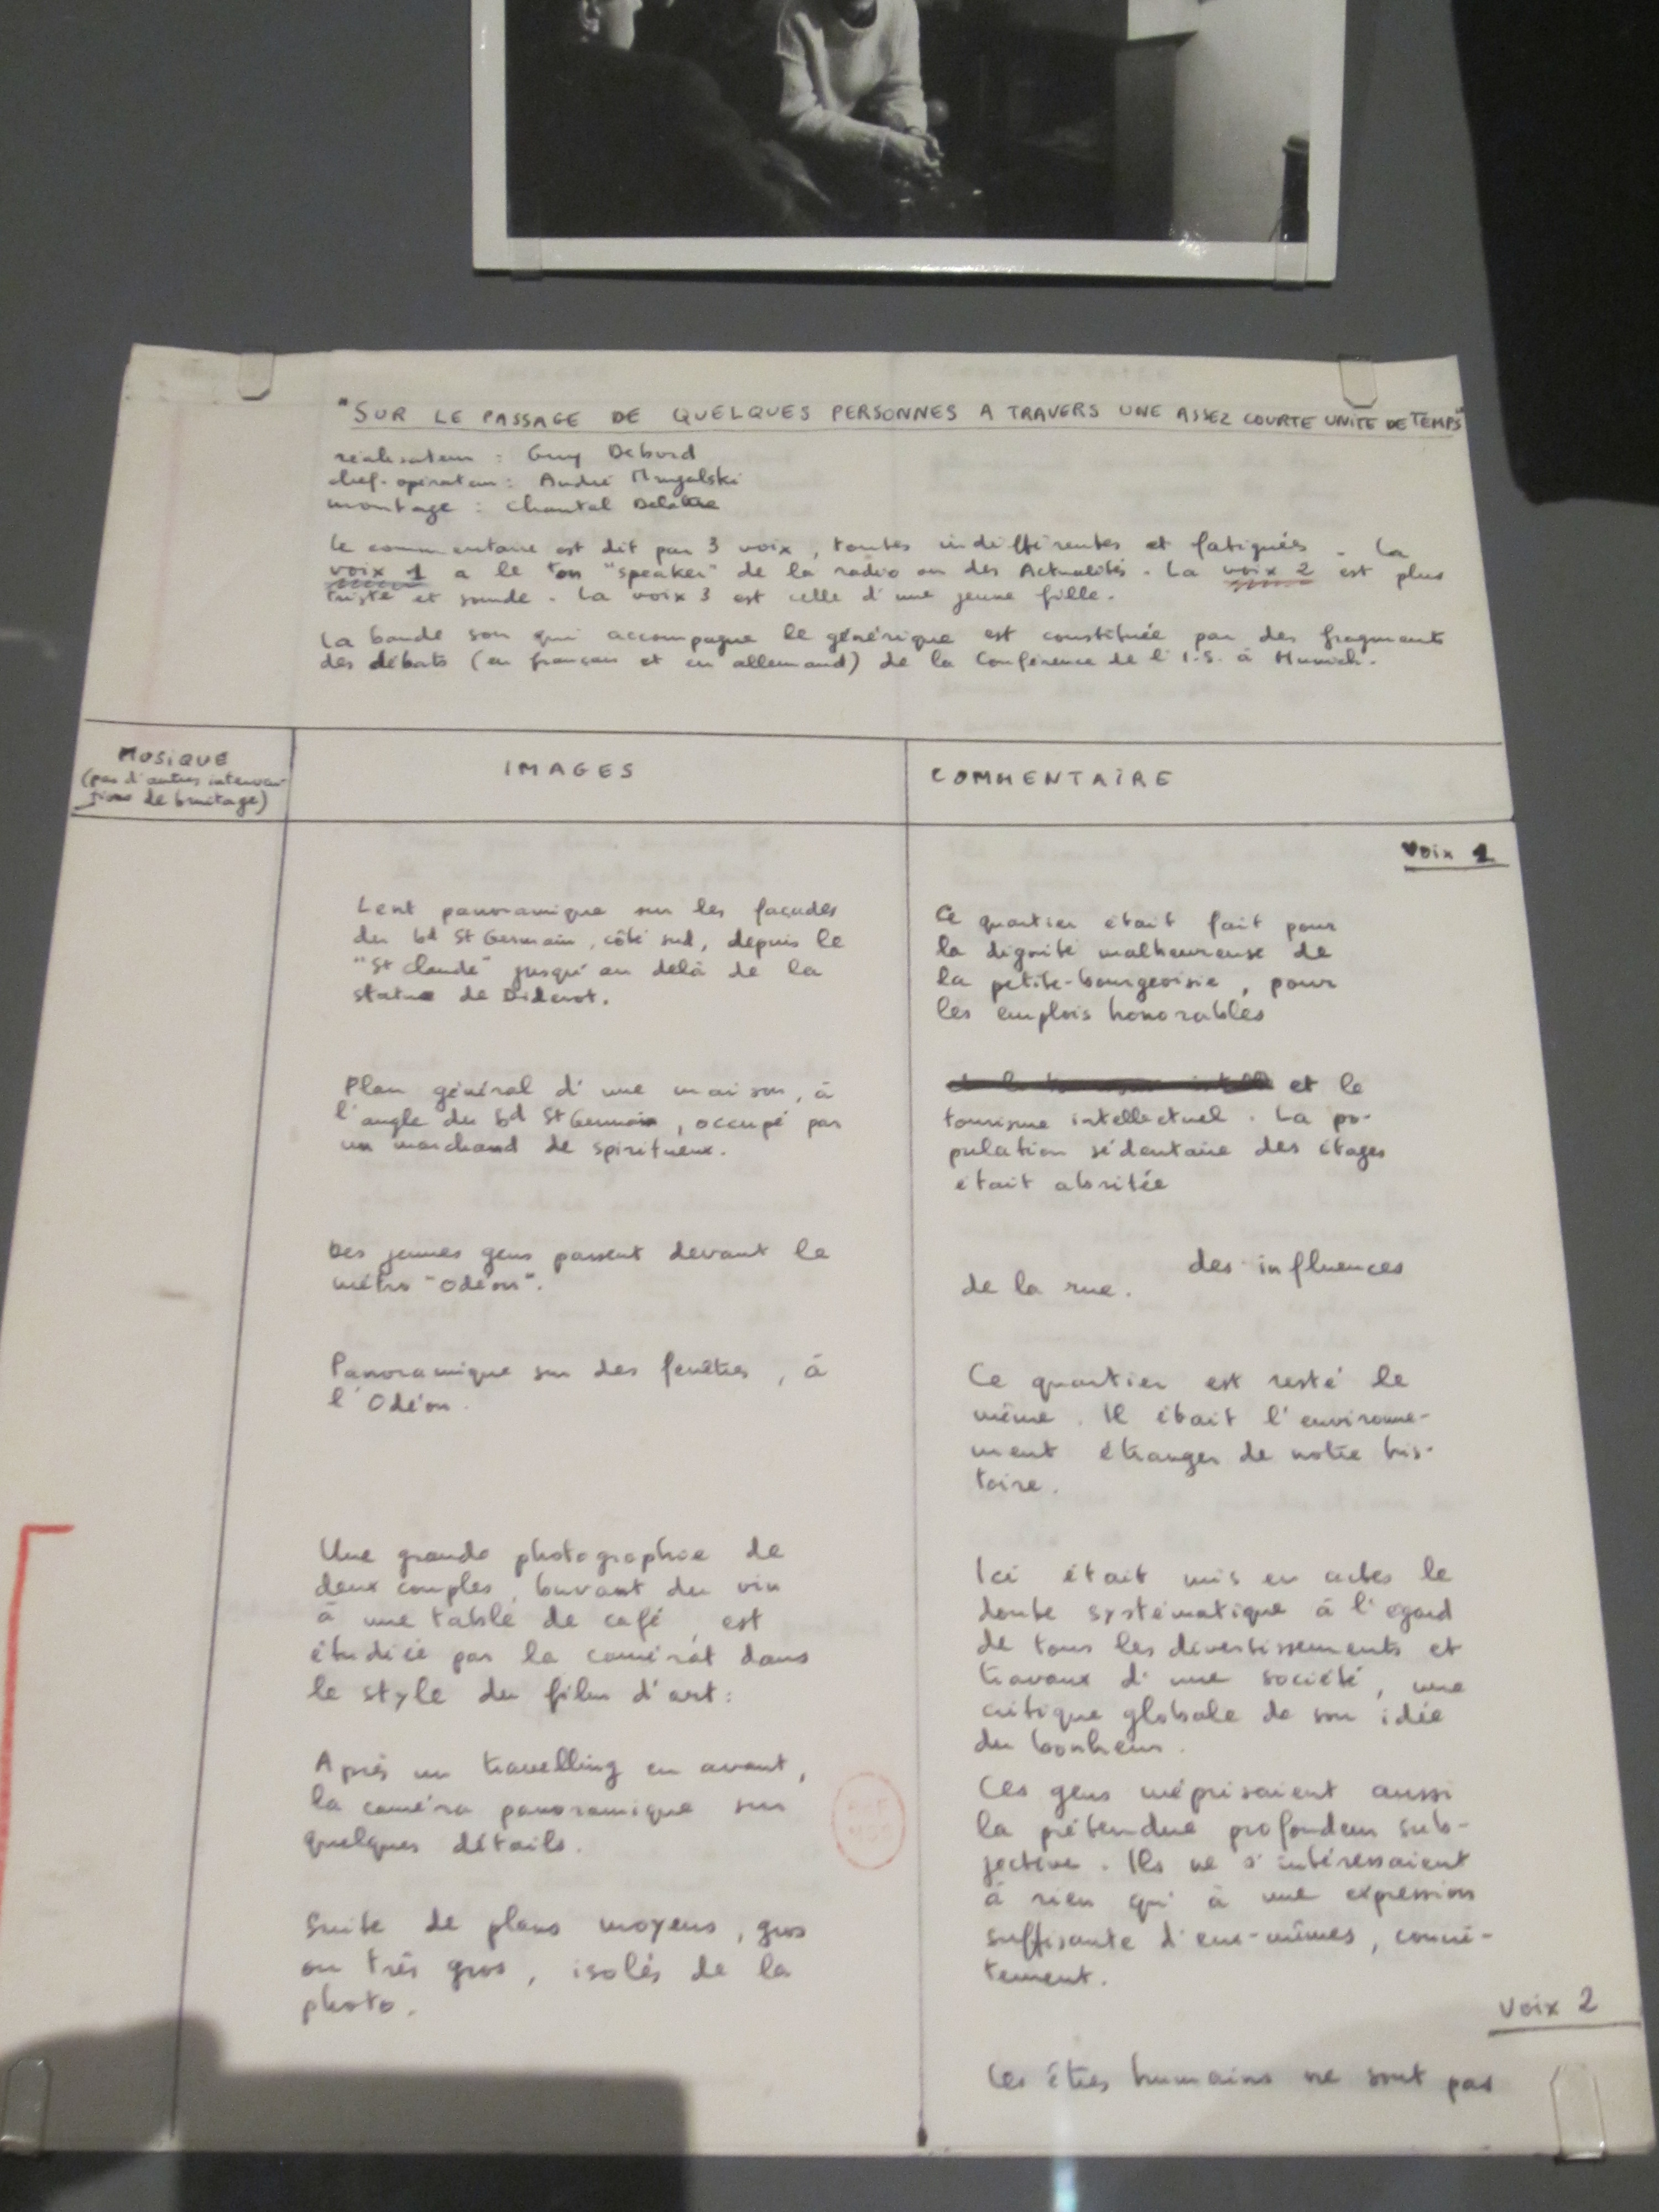 "SUR LE PASSAGE DE QUELQUES PERSONNES A TRAVERS UNE ASSEZ COURTE UNITE DE TEMPS"
réalisateur : Guy Debord
chef-opérateur : André Mrugalski
montage : Chantal Delattre
Le commentaire est dit par 3 voix, toutes indifférentes et fatiguées. La
voix 1 a le ton "speaker" de la radio ou des Actualités. La voix 2 est plus
triste et sourde. La voix 3 est celle d'une jeune fille.
La bande son qui accompagne le générique est constituée par des fragments
des débats (en français et en allemand) de la Conférence de l'I.S. à Munich.
MUSIQUE
(pas d'autres interven-
tions de bruitage)
IMAGES
COMMENTAIRE
Voix 1
Lent panoramique sur les façades
du bd St Germain, côté sud, depuis le
"St Claude" jusqu'au delà de la
statue de Diderot.
Ce quartier était fait pour
la dignité malheureuse de
la petite-bourgeoisie, pour
les emplois honorables
Plan général d'une maison, à
l'angle du bd St Germain, occupé par
un marchand de spiritueux.
et le
tourisme intellectuel. La po-
pulation sédentaire des étages
était abritée
Des jeunes gens passent devant le
métro "Odéon".
des influences
de la rue.
Panoramique sur des fenêtres, à
l'Odéon.
Ce quartier est resté le
même. Il était l'environne-
ment étranger de notre his-
toire.
Une grande photographie de
deux couples, buvant du vin
à une table de café, est
étudiée par la caméra dans
le style du film d'art :
Ici était mis en actes le
doute systématique à l'égard
de tous les divertissements et
travaux d'une société, une
critique globale de son idée
du bonheur.
Après un travelling en avant,
la caméra panoramique sur
quelques détails.
Ces gens méprisaient aussi
la prétendue profondeur sub-
jective. Ils ne s'intéressaient
à rien qu'à une expression
suffisante d'eux-mêmes, concrè-
tement.
Suite de plans moyens, gros
ou très gros, isolés de la
photo.
Voix 2
Les êtres humains ne sont pas